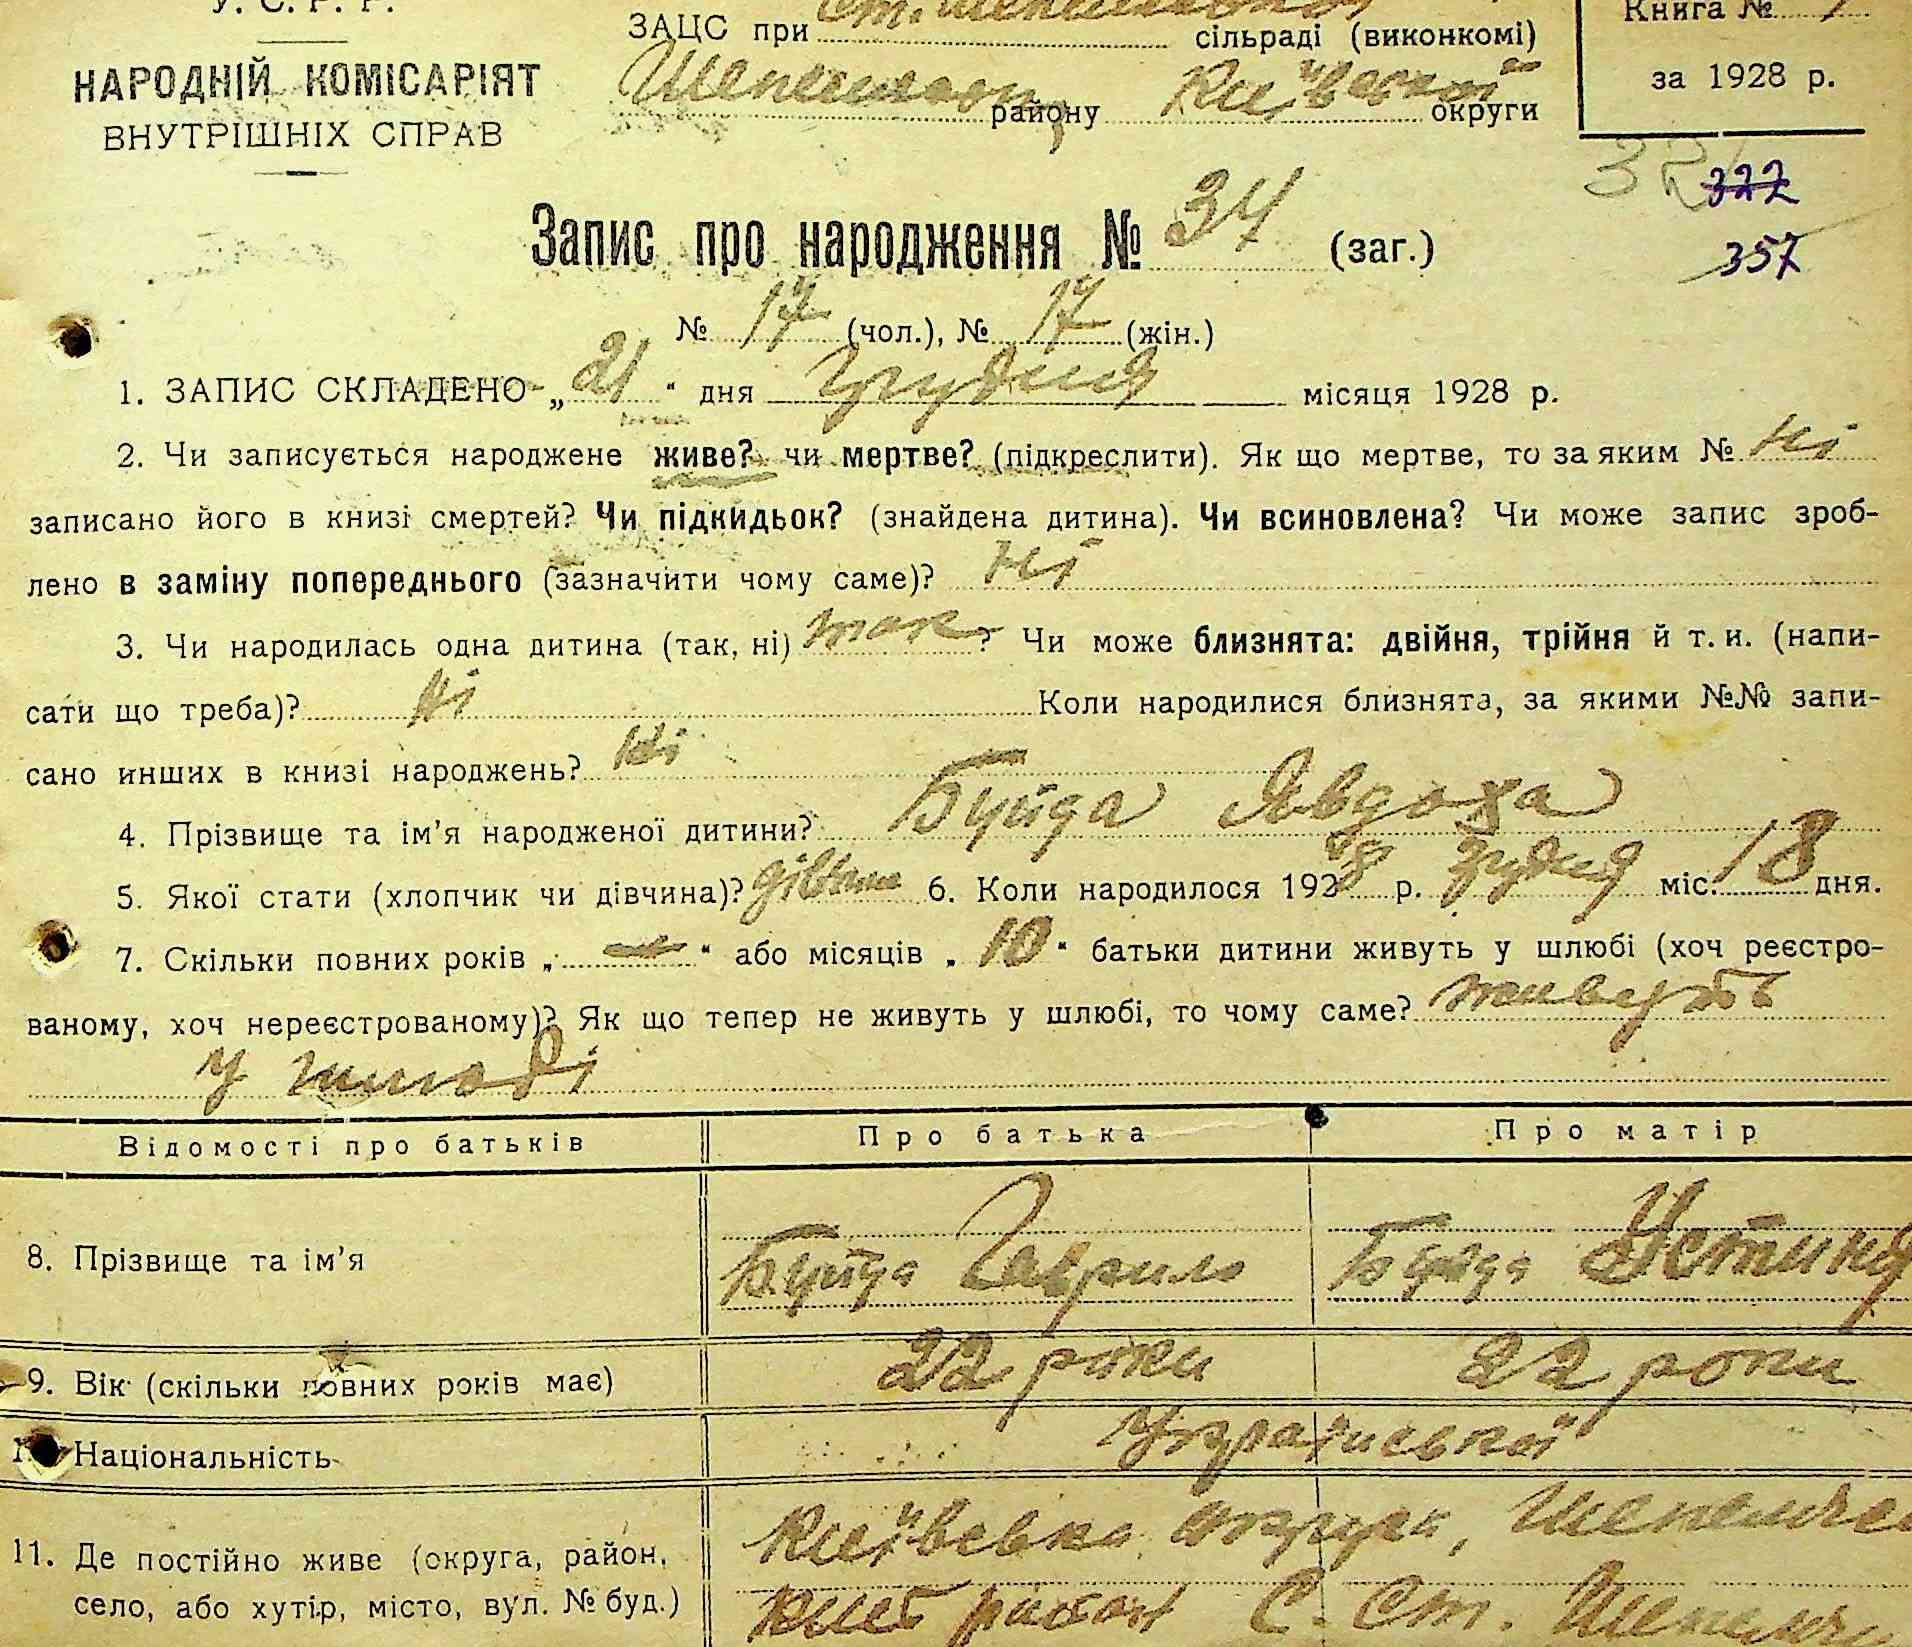 У. С. Р. Р.
НАРОДНІЙ КОМІСАРІЯТ
ВНУТРІШНІХ СПРАВ
ЗАЦС при Ст. сільраді (виконкомі)
району Київської округи
Книга №
за 1928 р.
327
357
Запис про народження № 34 (заг.)
№ 17 (чол.), № 17 (жін.)
1. ЗАПИС СКЛАДЕНО „21“ дня грудня місяця 1928 р.
2. Чи записується народжене живе? чи мертве? (підкреслити). Як що мертве, то за яким № ні
записано його в книзі смертей? Чи підкидьок? (знайдена дитина). Чи всиновлена? Чи може запис зроб-
лено в заміну попереднього (зазначити чому саме)? ні
3. Чи народилась одна дитина (так, ні) так? Чи може близнята: двійня, трійня й т. и. (напи-
сати що треба)? ні Коли народилися близнята, за якими №№ запи-
сано инших в книзі народжень? ні
4. Прізвище та ім’я народженої дитини? Буйда Явдоха
5. Якої стати (хлопчик чи дівчина)? дівчина 6. Коли народилося 1928 р. грудня міс. 18 дня.
7. Скільки повних років „—“ або місяців „10“ батьки дитини живуть у шлюбі (хоч реєстро-
ваному, хоч нереєстрованому)? Як що тепер не живуть у шлюбі, то чому саме? живуть
у шлюбі
Відомості про батьків Про батька Про матір
8. Прізвище та ім’я Буйда Гаврило Буйда Устина
9. Вік (скільки повних років має) 22 роки 22 роки
Національність Української
11. Де постійно живе (округа, район, Київська округа,
село, або хутір, місто, вул. № буд.) район С. Ст.